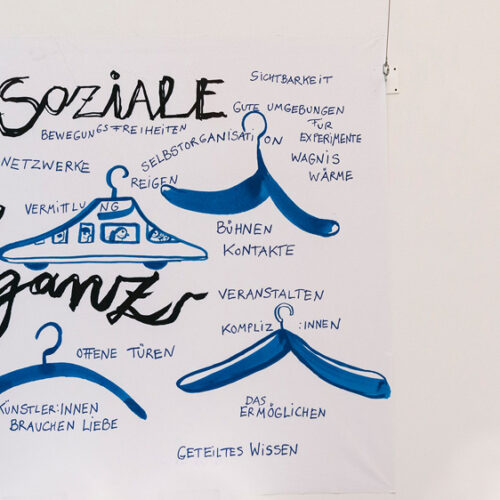 SOZIALE
SICHTBARKEIT
GUTE UMGEBUNGEN
FÜR
EXPERIMENTE
BEWEGUNGSFREIHEITEN
SELBSTORGANISATION
WAGNIS
WÄRME
NETZWERKE
REIGEN
VERMITTLUNG
BÜHNEN
KONTAKTE
ganz
VERANSTALTEN
KOMPLIZ:INNEN
OFFENE TÜREN
DAS
ERMÖGLICHEN
KÜNSTLER:INNEN
BRAUCHEN LIEBE
GETEILTES WISSEN